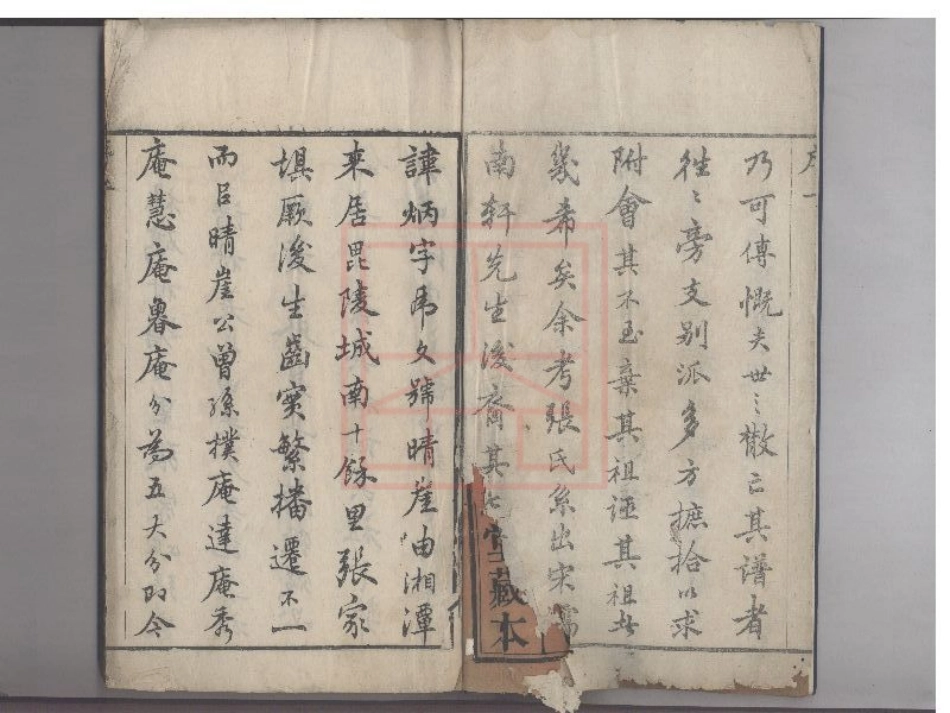 序一
乃可傳慨夫世〻散亡其譜者
徃〻旁支别派多方摭拾以求
附會其不至棄其祖誣其祖者
幾希矣余考張氏系出宋儒
南軒先生後裔其七
堂藏本
諱炳字希文號晴崖由湘潭
来居毘陵城南十餘里張家
垻厥後生齒寔繁播遷不一
而吕晴崖公曽孫樸庵達庵秀
庵慧庵魯庵分為五大分即今